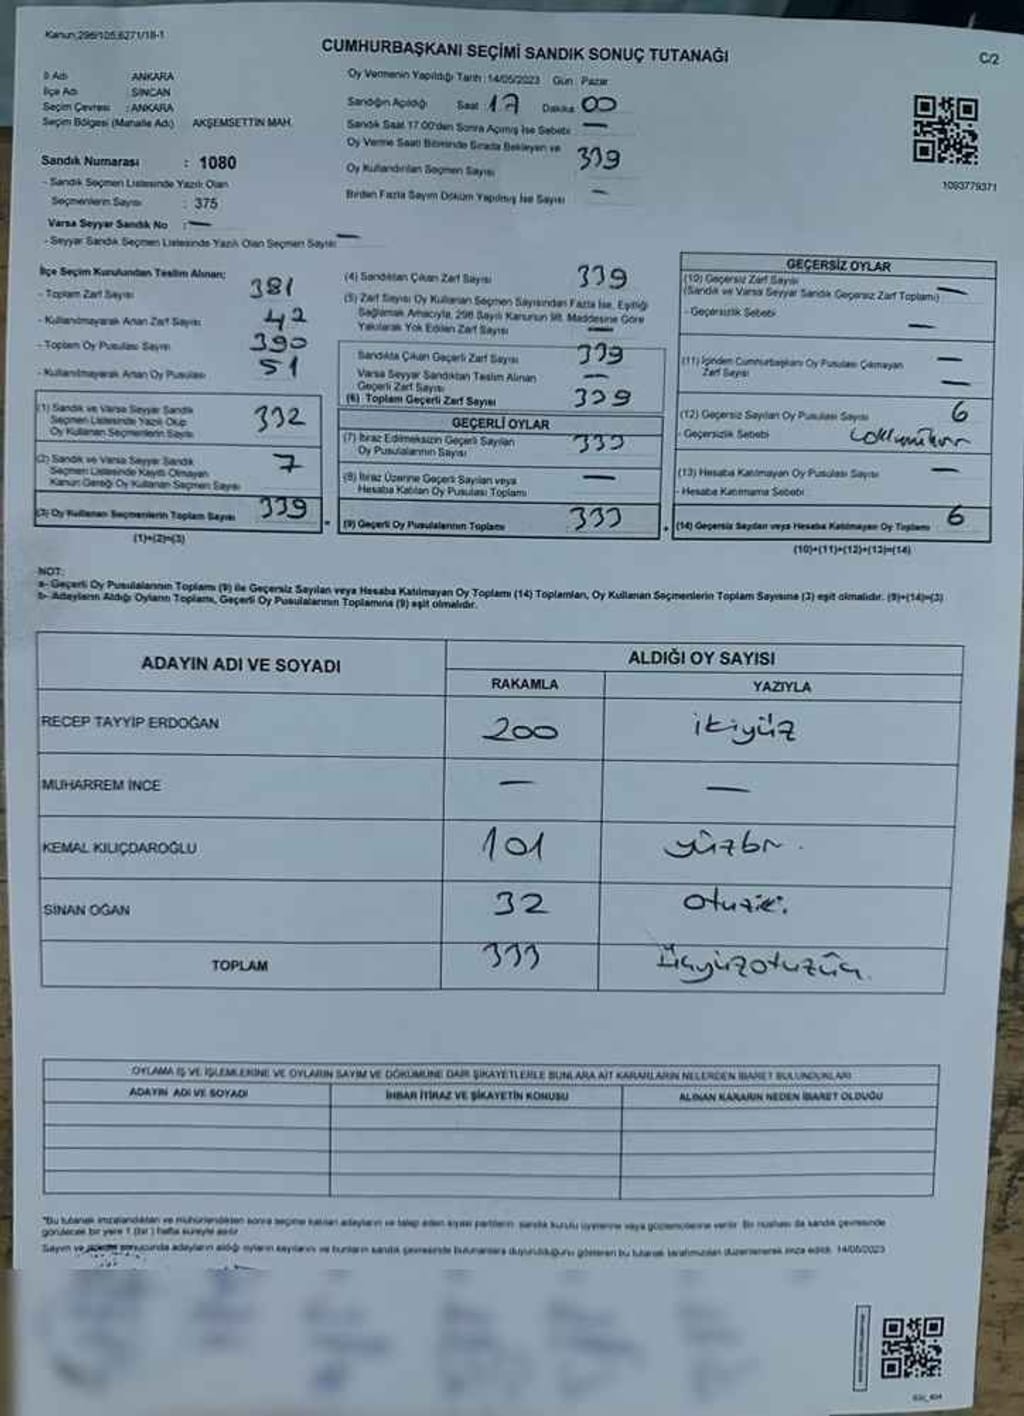 Kanun:298/105,6271/18-1
CUMHURBAŞKANI SEÇİMİ SANDIK SONUÇ TUTANAĞI
C/2
İl Adı ANKARA
İlçe Adı SİNCAN
Seçim Çevresi : ANKARA
Seçim Bölgesi (Mahalle Adı) AKŞEMSETTİN MAH.
Oy Vermenin Yapıldığı Tarih : 14/05/2023 Gün : Pazar
Sandığın Açıldığı Saat : 17 Dakika 00
Sandık Saat 17.00'den Sonra Açılmış İse Sebebi —
Oy Verme Saati Bitiminde Sırada Bekleyen ve
Oy Kullandırılan Seçmen Sayısı 339
Birden Fazla Sayım Döküm Yapılmış İse Sayısı —
1093779371
Sandık Numarası : 1080
- Sandık Seçmen Listesinde Yazılı Olan
Seçmenlerin Sayısı : 375
Varsa Seyyar Sandık No : —
- Seyyar Sandık Seçmen Listesinde Yazılı Olan Seçmen Sayısı —
İlçe Seçim Kurulundan Teslim Alınan;
- Toplam Zarf Sayısı 381
- Kullanılmayarak Artan Zarf Sayısı 42
- Toplam Oy Pusulası Sayısı 390
- Kullanılmayarak Artan Oy Pusulası 51
(1) Sandık ve Varsa Seyyar Sandık
Seçmen Listesinde Yazılı Olup
Oy Kullanan Seçmenlerin Sayısı 332
(2) Sandık ve Varsa Seyyar Sandık
Seçmen Listesinde Kayıtlı Olmayan
Kanun Gereği Oy Kullanan Seçmen Sayısı 7
(3) Oy Kullanan Seçmenlerin Toplam Sayısı 339
(1)+(2)=(3)
(4) Sandıktan Çıkan Zarf Sayısı 339
(5) Zarf Sayısı Oy Kullanan Seçmen Sayısından Fazla İse, Eşitliği
Sağlamak Amacıyla, 298 Sayılı Kanunun 98. Maddesine Göre
Yakılarak Yok Edilen Zarf Sayısı —
Sandıkta Çıkan Geçerli Zarf Sayısı 339
Varsa Seyyar Sandıktan Teslim Alınan
Geçerli Zarf Sayısı —
(6) Toplam Geçerli Zarf Sayısı 339
GEÇERLİ OYLAR
(7) İtiraz Edilmeksizin Geçerli Sayılan
Oy Pusulalarının Sayısı 333
(8) İtiraz Üzerine Geçerli Sayılan veya
Hesaba Katılan Oy Pusulası Toplamı —
(9) Geçerli Oy Pusulalarının Toplamı 333
GEÇERSİZ OYLAR
(10) Geçersiz Zarf Sayısı
(Sandık ve Varsa Seyyar Sandık Geçersiz Zarf Toplamı) —
- Geçersizlik Sebebi —
(11) İçinden Cumhurbaşkanı Oy Pusulası Çıkmayan
Zarf Sayısı —
(12) Geçersiz Sayılan Oy Pusulası Sayısı 6
- Geçersizlik Sebebi
(13) Hesaba Katılmayan Oy Pusulası Sayısı —
- Hesaba Katılmama Sebebi
(14) Geçersiz Sayılan veya Hesaba Katılmayan Oy Toplamı 6
(10)+(11)+(12)+(13)=(14)
NOT:
a- Geçerli Oy Pusulalarının Toplamı (9) ile Geçersiz Sayılan veya Hesaba Katılmayan Oy Toplamı (14) Toplamları, Oy Kullanan Seçmenlerin Toplam Sayısına (3) eşit olmalıdır. (9)+(14)=(3)
b- Adayların Aldığı Oyların Toplamı, Geçerli Oy Pusulalarının Toplamına (9) eşit olmalıdır.
ADAYIN ADI VE SOYADI ALDIĞI OY SAYISI
RAKAMLA YAZIYLA
RECEP TAYYİP ERDOĞAN 200 ikiyüz
MUHARREM İNCE — —
KEMAL KILIÇDAROĞLU 101 yüzbir
SİNAN OĞAN 32 otuziki
TOPLAM 333 Üçyüzotuzüç
OYLAMA İŞ VE İŞLEMLERİNE VE OYLARIN SAYIM VE DÖKÜMÜNE DAİR ŞİKAYETLERLE BUNLARA AİT KARARLARIN NELERDEN İBARET BULUNDUKLARI
ADAYIN ADI VE SOYADI İHBAR İTİRAZ VE ŞİKAYETİN KONUSU ALINAN KARARIN NEDEN İBARET OLDUĞU
*Bu tutanak imzalandıktan ve mühürlendikten sonra seçime katılan adayların ve talep eden siyasi partilerin sandık kurulu üyelerine veya gözlemcilerine verilir. Bir nüshası da sandık çevresinde
görülecek bir yere 1 (bir) hafta süreyle asılır.
Sayım ve döküm sonucunda adayların aldığı oyların sayılarını ve bunların sandık çevresinde bulunanlara duyurulduğunu gösteren bu tutanak tarafımızdan düzenlenerek imza edildi. 14/05/2023